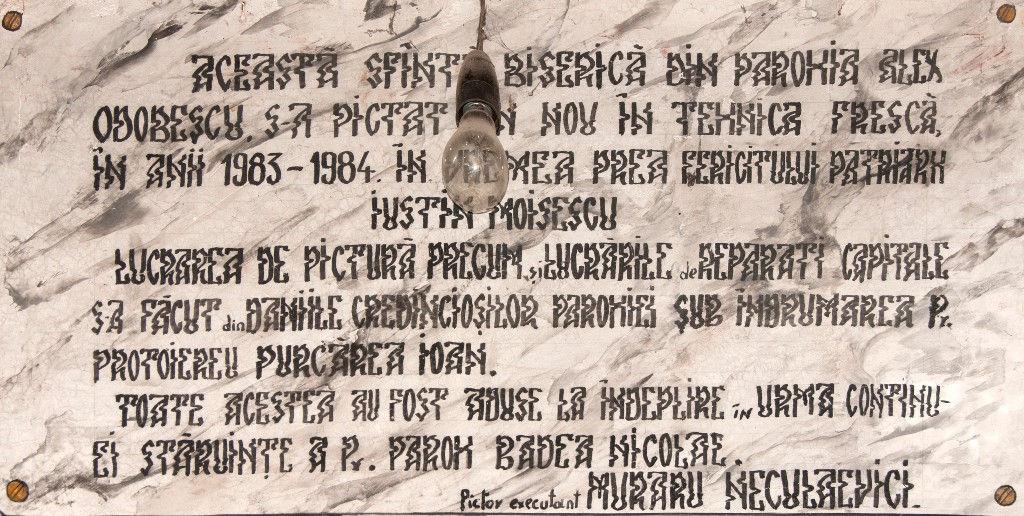 ACEASTĂ SFÎNTĂ BISERICĂ DIN PAROHIA ALEX
ODOBESCU, S-A PICTAT DIN NOU ÎN TEHNICA FRESCĂ,
ÎN ANII 1983-1984. ÎN VREMEA PREA FERICITULUI PATRIARH
IUSTIN MOISESCU
LUCRAREA DE PICTURĂ PRECUM și LUCRĂRILE de REPARAȚI CAPITALE
S-A FĂCUT din DANIILE CREDINCIOȘILOR PAROHIEI SUB ÎNDRUMAREA Pr.
PROTOIEREU PURCĂREA IOAN.
TOATE ACESTEA AU FOST ADUSE LA ÎNDEPLIRE în URMA CONTINU-
EI STĂRUINȚE A Pr. PAROH BADEA NICOLAE.
Pictor executant MURARU NECULAEVICI.